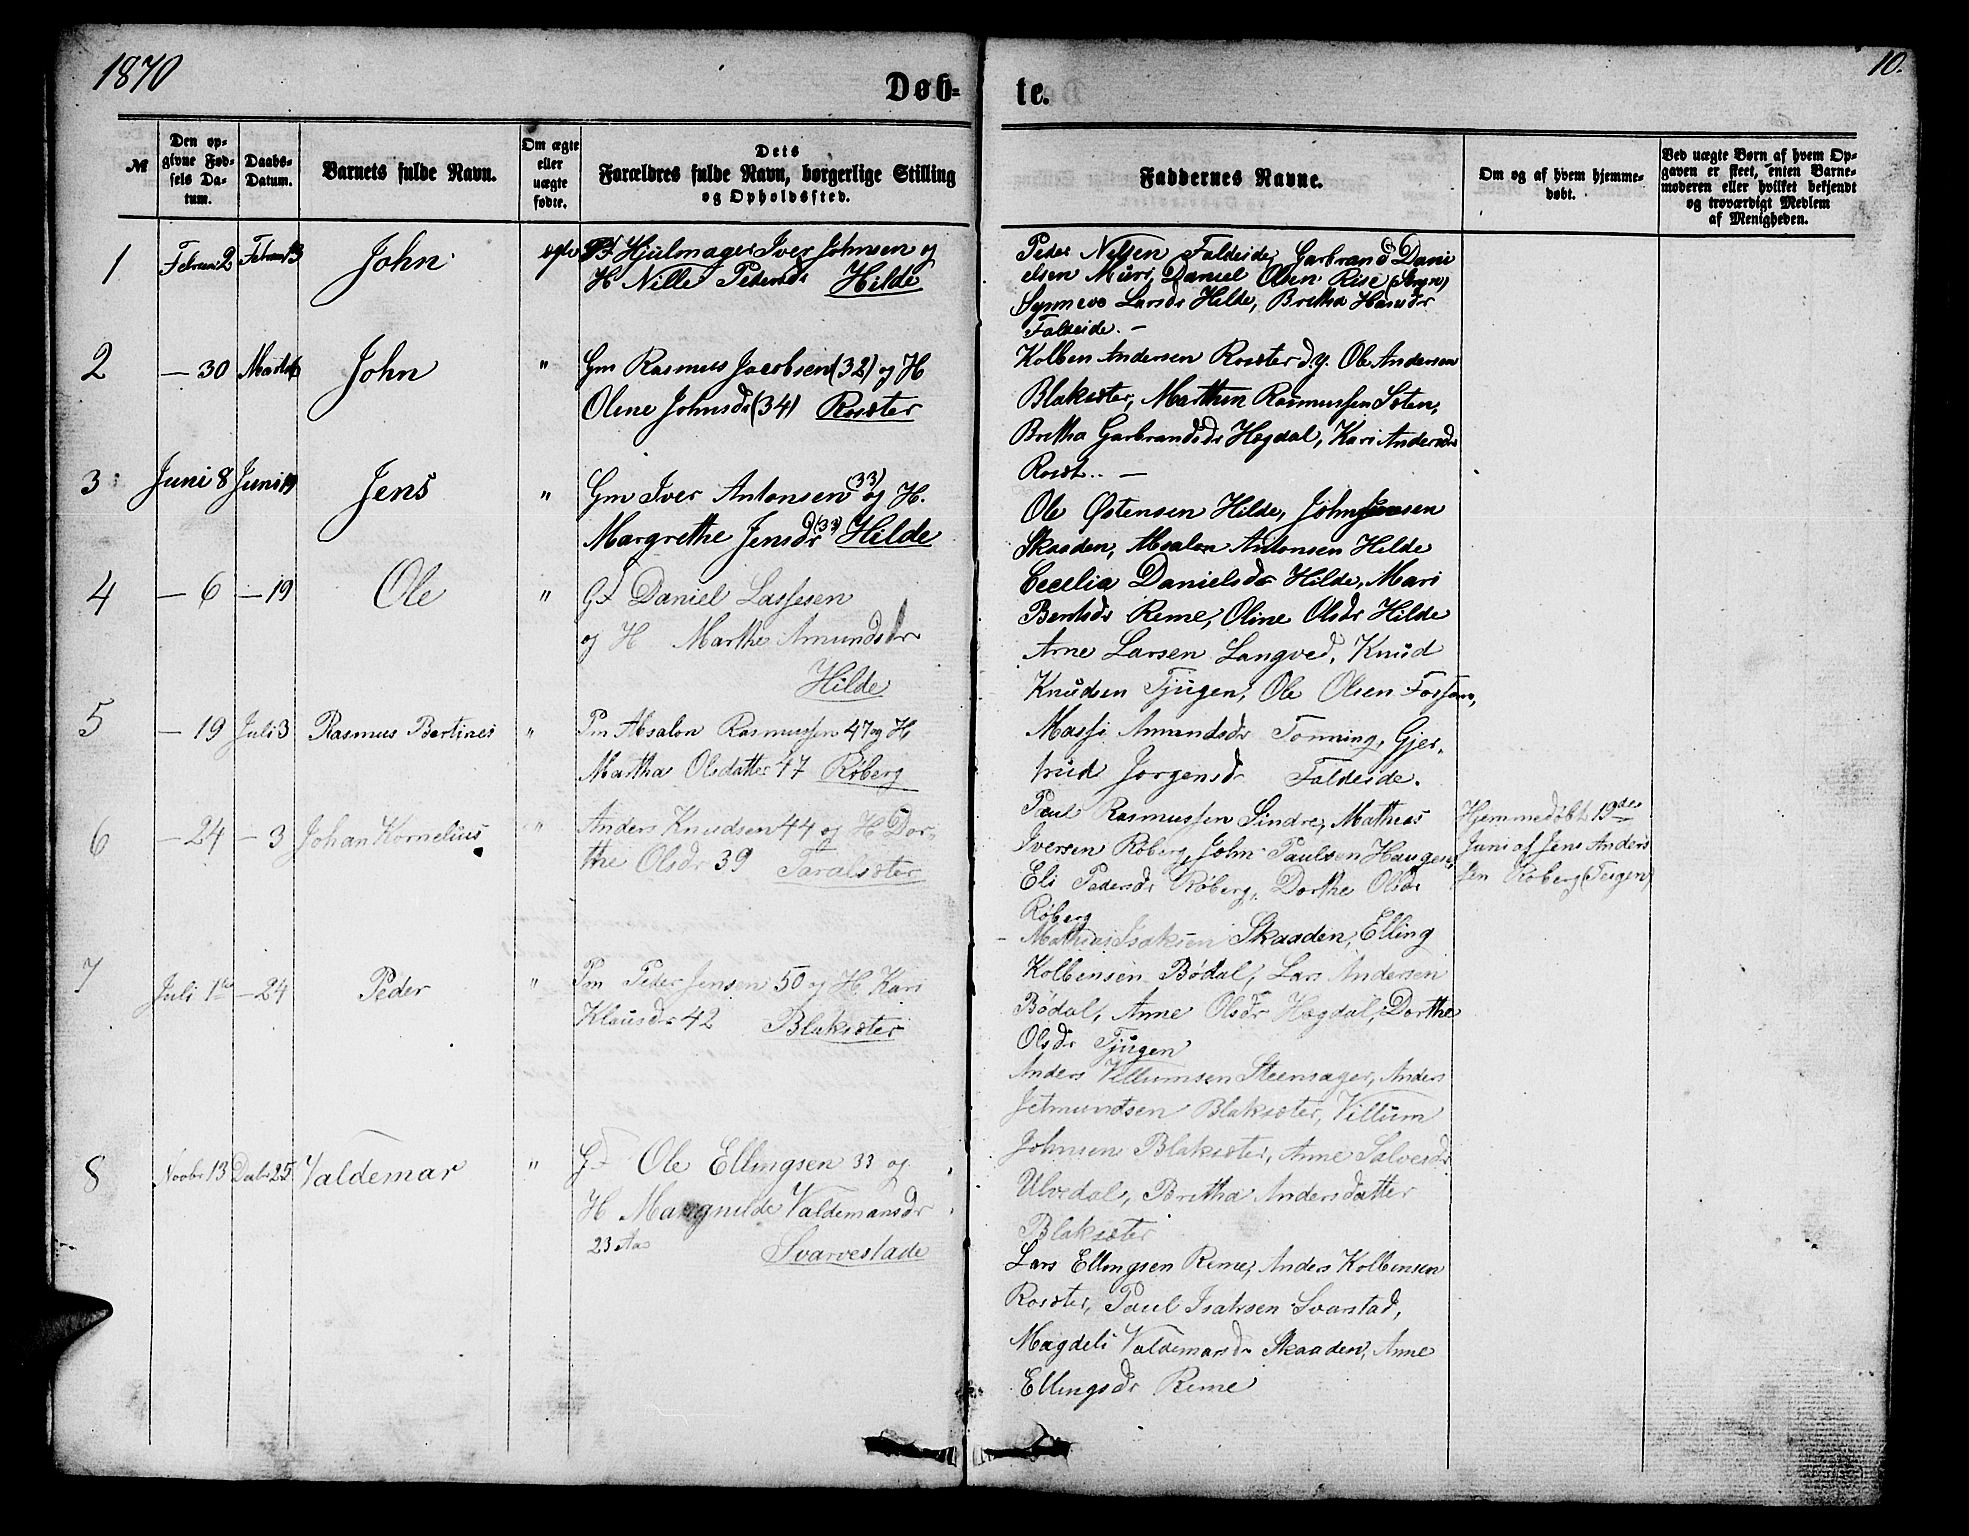 1870
10.
Døb-
te.
№
Den op-
givne Fød-
sels Da-
tum.
Daabs-
Datum.
Barnets fulde Navn.
Om ægte
eller
uægte
fødte.
Dets
Forældres fulde Navn, borgerlige Stilling
og Opholdssted.
Faddernes Navne.
Om og af hvem hjemme-
døbt.
Ved uægte Børn af hvem Op-
gaven er skeet, enten Barne-
moderen eller hvilket bekjendt
og troværdigt Medlem
af Menigheden.
1
2
13
John
ægte
Hjulmager Iver Johnsen og
H Nille Pedersdr Hilde
Peder Nilsen Faldeide, Garbrand Dani
elsen Muri, Daniel Olsen Rise (Stryn)
Synneve Larsdr Hilde, Bretha Hansdr
Faldeide. —
2
— 30
John
"
Gm Rasmus Jacobsen (32) og H
Oline Johnsdr (34) Rosæter
Kolben Andersen Rosæter d.y. Ole Andersen
Blaksæter, Marthin Rasmussen Sæten,
Bretha Garbrandsdr Hægdal, Kari Andersdr
Rosæt.. —
3
Juni 8
Juni 19
Jens
"
Gm Iver Antonsen (33) og H.
Margrethe Jensdr (33) Hilde
Ole Østensen Hilde, John Jensen
Skaaden, Absalon Antonsen Hilde
Cecelia Danielsdr Hilde, Mari
Bentsdr Reme, Oline Olsdr Hilde
4
— 6
— 19
Ole
"
GF Daniel Lassesen
og H Marthe Amundsdr
Hilde
Arne Larsen Langved, Knud
Knudsen Tjugen, Ole Olsen
Massi Amundsdr Tonning, Gjer-
trud Jorgensdr Faldeide.
5
— 19
Juli 3
Rasmus Bertines
"
Pm Absalon Rasmussen 47 og H
Martha Olsdatter 47 Røberg
Paul Rasmussen Sindre, Mathias
Iversen Røberg, John Paulsen Haugen,
Eli Pedersdr Røberg, Dorthe Olsdr
Røberg
Hjemmedøbt 19de
Juni af Jens Anders
sen Røberg (Teigen)
6
— 24
— 3
Johan Kornelius
"
Anders Knudsen 44 og H Dor-
the Olsdr 39 Taralsæter
Mathias Isaksen Skaaden, Elling
Kolbensen Bødal, Lars Andersen
Bødal, Anne Olsdr Hægdal, Dorthe
Olsdr Tjugen
7
Juli 1ste
— 24
Peder
"
Pm Peder Jensen 50 og H. Kari
Klausdr 42 Blaksæter
Anders Villumsen Steensager, Anders
Jetmundsen Blaksæter, Villum
Johnsen Blaksæter, Anne Salvesdr
Ulvedal, Bretha Andersdatter
Blaksæter
8
Novbr 13
25
Valdemar
"
GF Ole Ellingsen 33 og
H Valdemarsdr
23 Aar Svarvestade
Lars Ellingsen Reme, Anders Kolbensen
Rosæter, Paul Isaksen Svarstad,
Magdeli Valdemarsdr Skaaden, Anne
Ellingsdr Reme